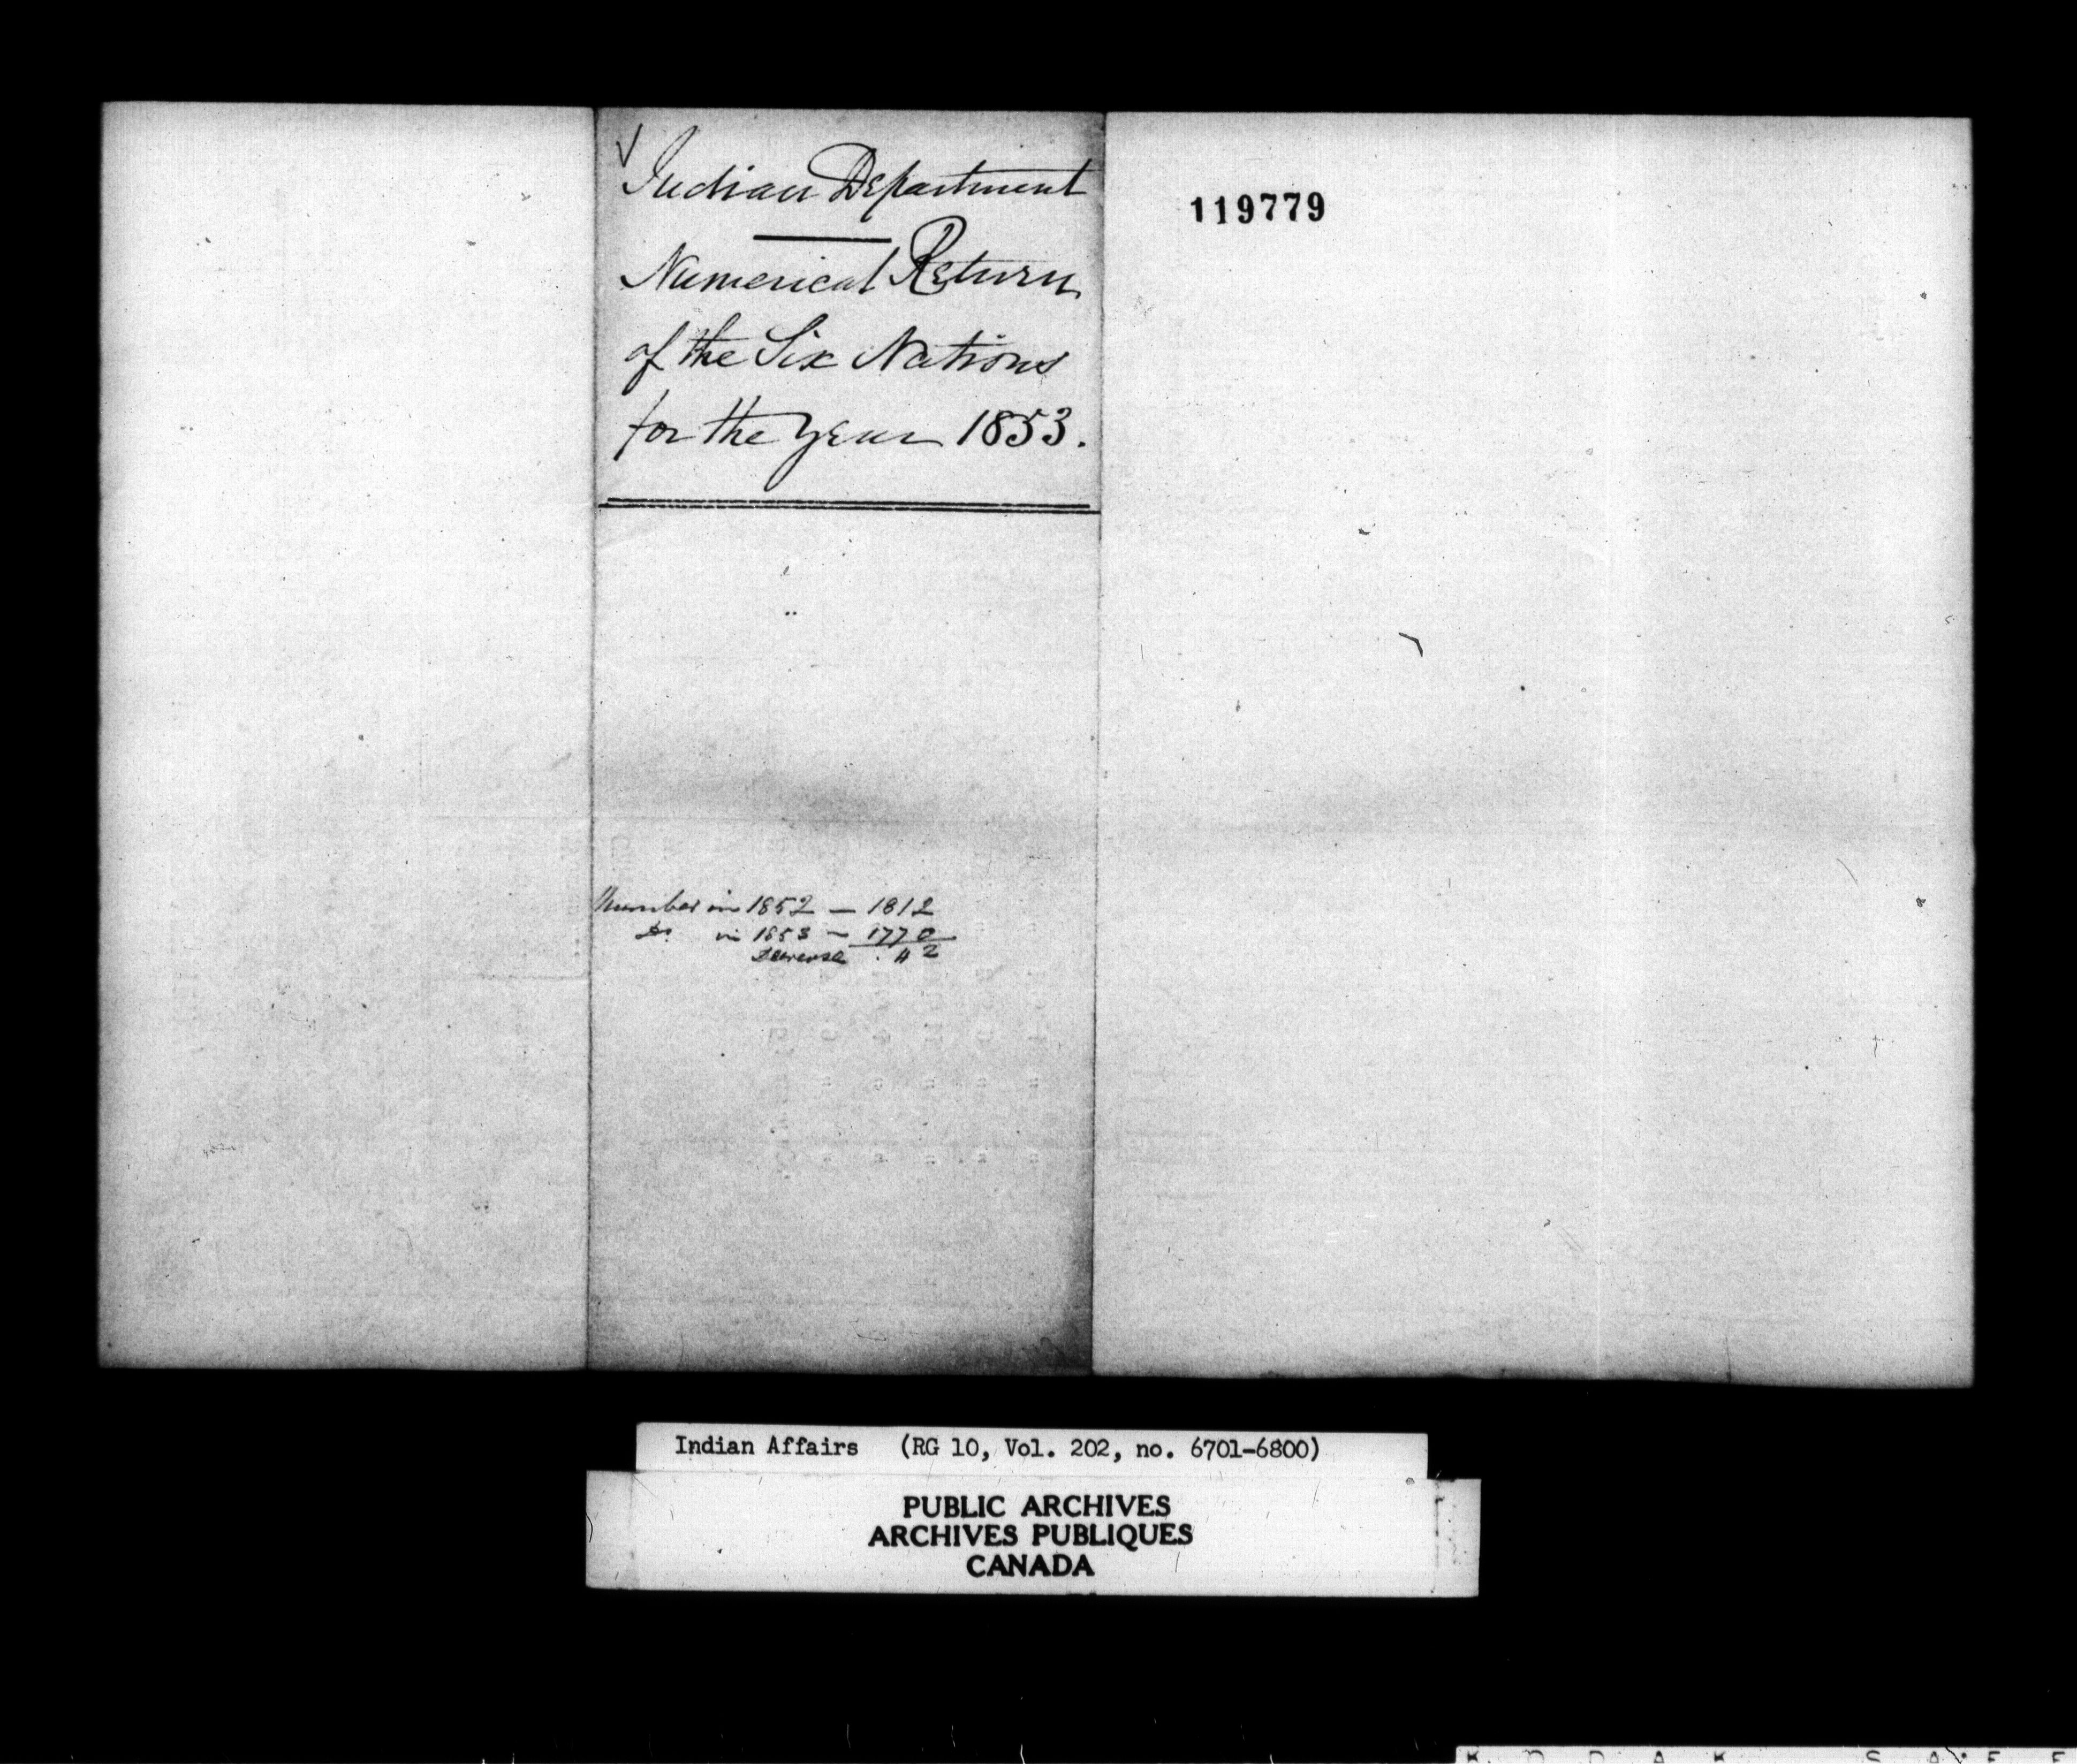 Indian Department
Numerical Return
of the Six Nations
for the year 1853.
119779
Number in 1852 — 1812
Do. in 1853 — 1770
Decrease . 42
Indian Affairs (RG 10, Vol. 202, no. 6701-6800)
PUBLIC ARCHIVES
ARCHIVES PUBLIQUES
CANADA
K O D A K S A F E